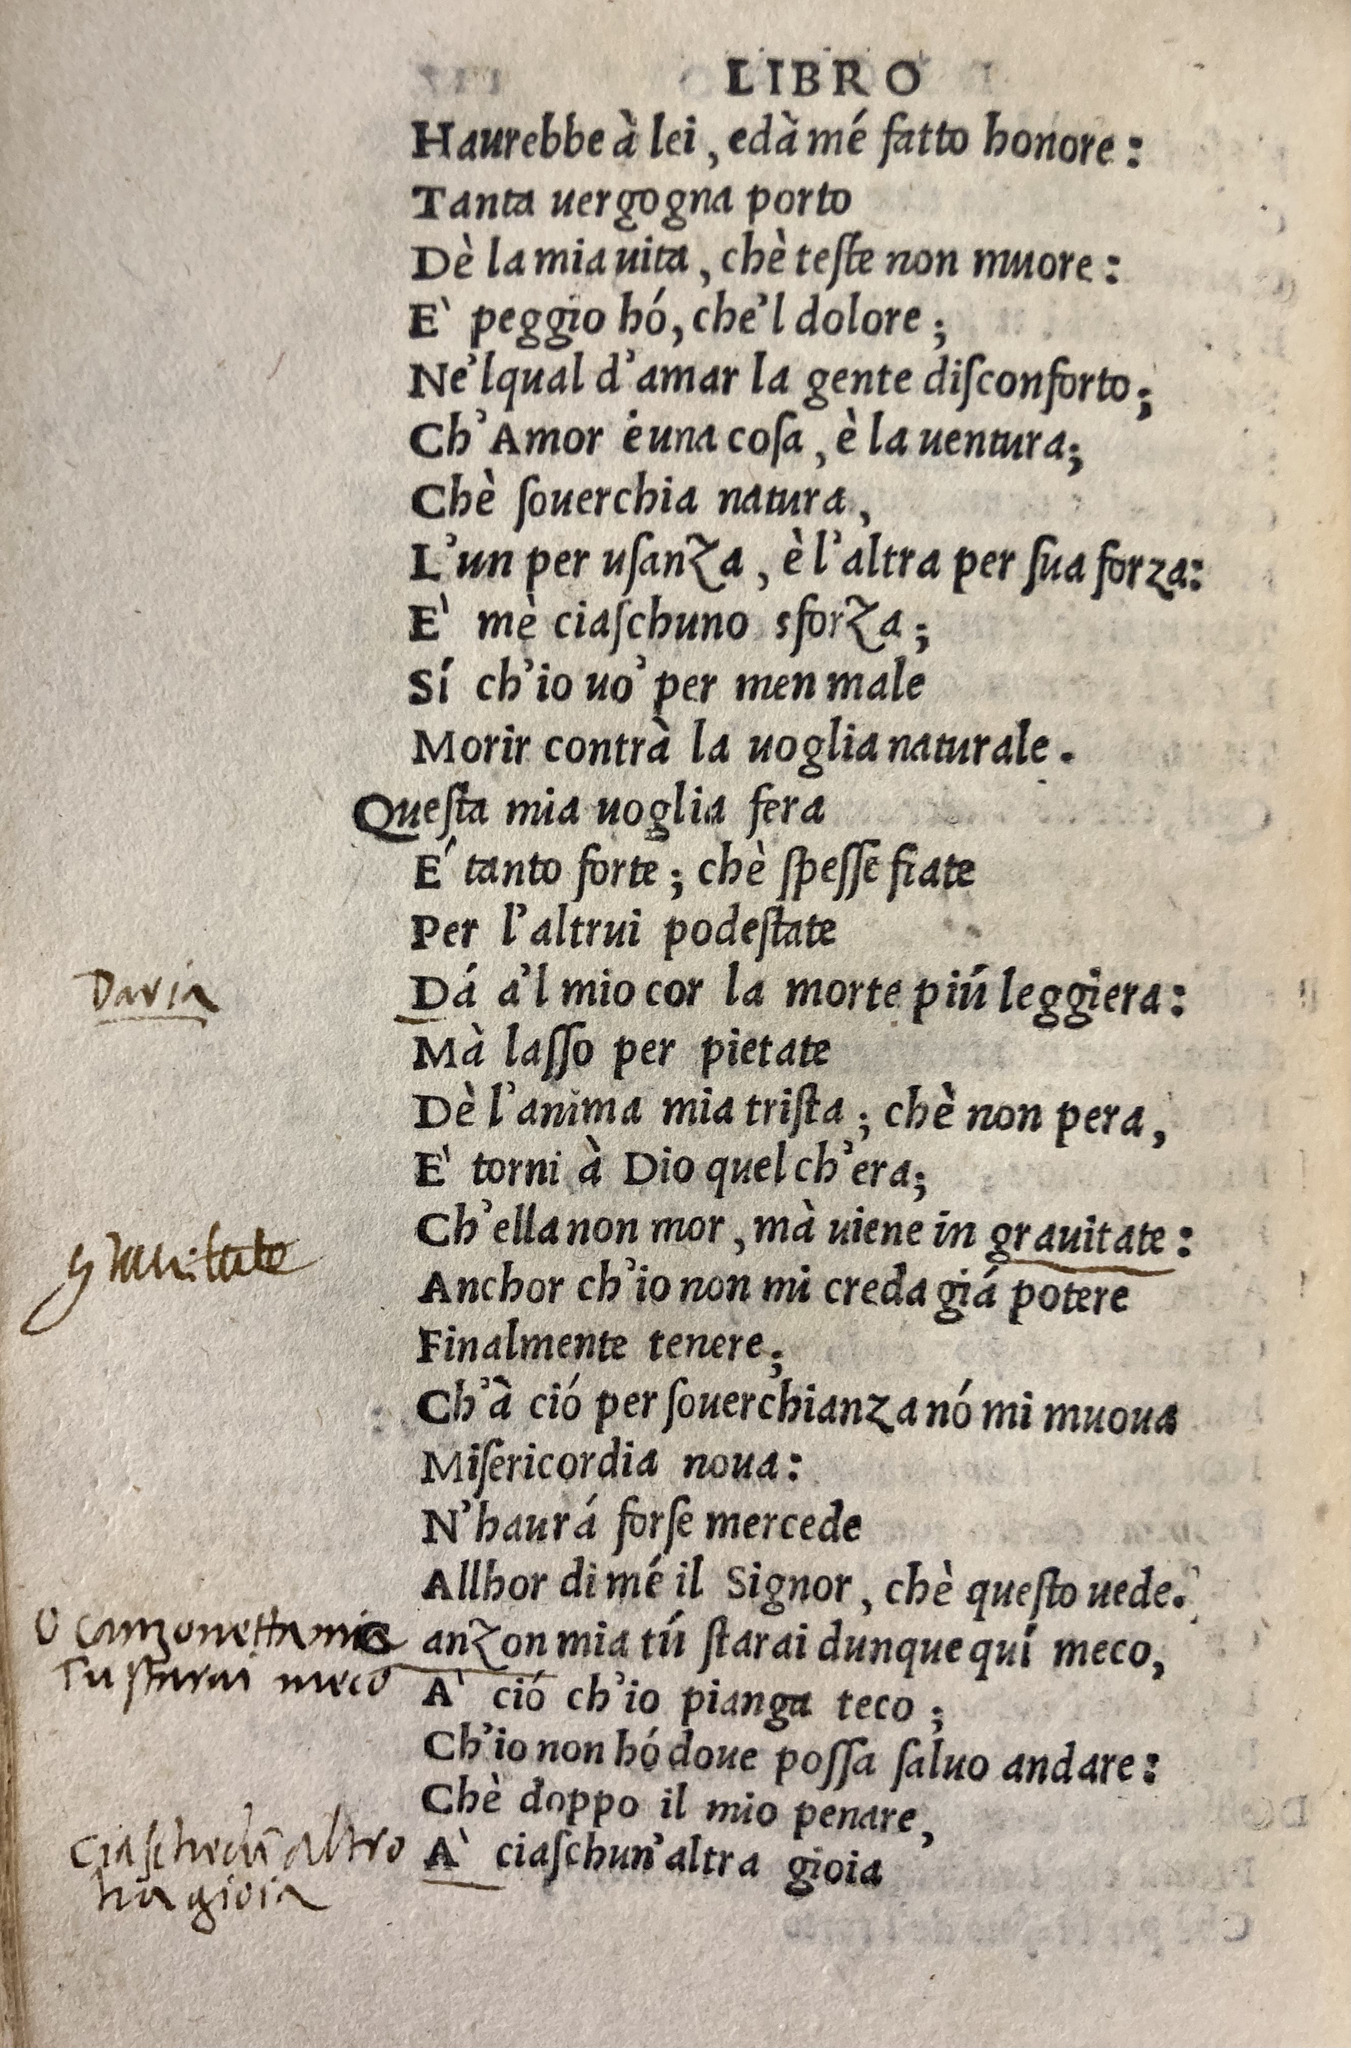 LIBRO
Haurebbe à lei, ed à mé fatto honore:
Tanta uergogna porto
Dè la mia uita, chè teſte non muore:
E` peggio hó, che'l dolore;
Ne'lqual d'amar la gente diſconforto;
Ch'Amor è una coſa, è la uentura;
Chè ſouerchia natura,
L'un per uſanza, è l'altra per ſua forza:
E` mè ciaſchuno sforza;
Sí ch'io uo' per men male
Morir contrà la uoglia naturale.
Queſta mia uoglia fera
E´ tanto forte; chè ſpeſſe fiate
Per l'altrui podeſtate
Daria
Dá a'l mio cor la morte piú leggiera:
Mà laſſo per pietate
Dè l'anima mia triſta; chè non pera,
E` torni à Dio quel ch'era;
Ch'ella non mor, mà uiene in grauitate:
grauitate
Anchor ch'io non mi creda giá potere
Finalmente tenere;
Ch'à ció per ſouerchianza nó mi muoua
Miſericordia noua:
N'haurá forſe mercede
Allhor di mé il Signor, chè queſto uede.
O canzonetta mia
Canzon mia tú ſtarai dunque quí meco,
Tu ſtarai meco
A` ció ch'io pianga teco;
Ch'io non hó doue poſſa ſaluo andare:
Chè doppo il mio penare,
altro
A` ciaſchun'altra gioia
ha gioia